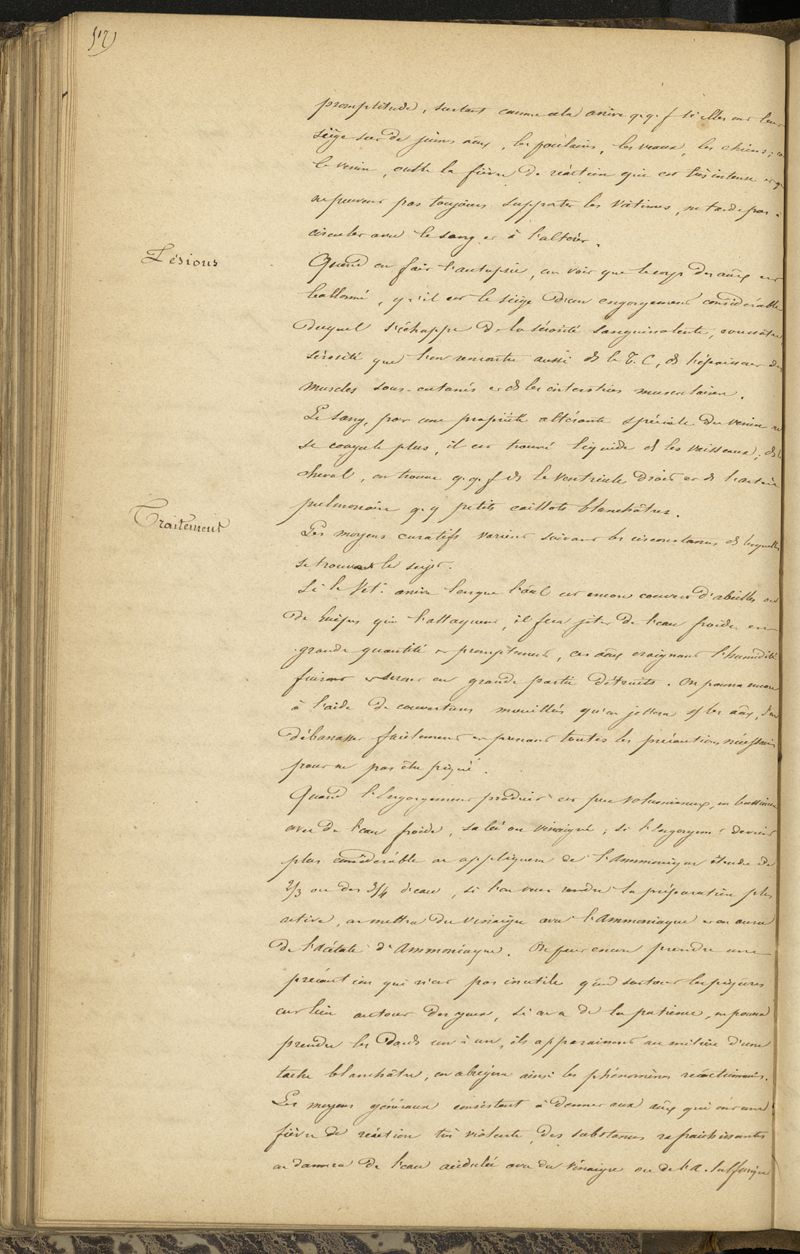 promptitude, surtout comme cela arrive q.q.f si elles ont leur
siège sur de jeunes aux, les poulains, les veaux, les chiens;
le venin, outre la fièvre de réaction qui est très intense et q
ne peuvent pas toujours supporter les victimes, ne tarde pas à
circuler avec le sang et à l'altérer.
Lésions
Quand on fait l'autopsie, on voit que le corps des aux est
ballonné, qu'il est le siège d'un engorgement considérable
duquel s'échappe de la sérosité sanguinolente, roussâtre,
sérosité que l'on rencontre aussi ds le T. C, ds l'épaisseur des
muscles sous-cutanés et ds les interstices musculaires.
Le sang, par une propriété altérante spéciale du venin ne
se coagule plus, il est trouvé liquide ds les vaisseaux; ds le
cheval, on trouve q.q.f ds le ventricule droit et ds l'artère
pulmonaire q.q petits caillots blanchâtres.
Traitement
Les moyens curatifs varient suivant les circonstances ds lesquelles
se trouve le sujet.
Si le Vét. arrive lorsque l'aal est encore couvert d'abeilles ou
de Guêpes qui l'attaquent, il fera jeter de l'eau froide en
grande quantité et promptement, ces aux craignant l'humidité
fuiront et seront en grande partie détruits. On pourra encore
à l'aide de couvertures mouillées qu'on jettera sr les aux, s'en
débarasser facilement en prenant toutes les précautions nécessaires
pour ne pas être piqué.
Quand l'Engorgement produit est peu volumineux, on bassine
avec de l'eau froide, salée ou vinaigré; si l'Engorgemt devient
plus considérable on appliquera de l'Ammoniaque étendu de
2/3 ou des 3/4 d'eau, si l'on veut rendre la préparation plus
active, on mettra du vinaigre avec l'Ammoniaque et on aura
de l'acétate d'Ammoniaque. On peut encore prendre une
précaution qui n'est pas inutile qd surtout les piqûres
ont lieu autour des yeux, si on a de la patience, on pourra
prendre les dards un à un, ils apparaissent au milieu d'une
tache blanchâtre, on abrégera ainsi les phénomènes réactionnels.
Les moyens généraux consistent à donner aux aux qui ont une
fièvre de réaction très violente, des substances rafraichissantes
on donnera de l'eau acidulée avec du vinaigre ou de l'A. Sulfurique